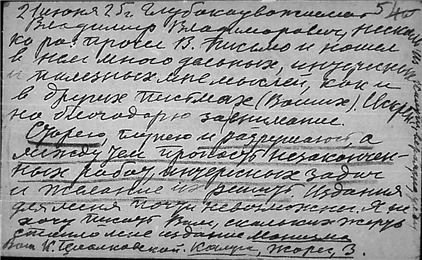 21 июня 25 г. Глубокоуважаемый
Владимир Владимирович, несколь
ко раз прочел В. письмо и нашел
в нем много дельных, интересных
и полезных мне мыслей, как и
в других письмах (Ваших). Искрен
но благодарю за внимание.
Старею, и разрушаюсь, а
между тем пропасть незакончен-
ных работ, интересных задач
и желание их решить. Издания
для меня почти невозможны. Я не
хочу писать Вам, скольких жертв
стоило мне издание
Ваш К. Циолковский. Калуга, Жорес, 3.
54